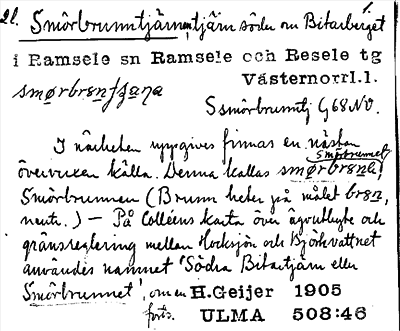 21. Smörbrunntjärnen, tjärn söder om Bitarberget
i Ramsele sn Ramsele och Resele tg
Västernorrl.l.
smørbrɵnfjæɳa
S smörbrumtj G 68 NV.
I närheten uppgives finnas en nästan
övervuxen källa. Denna kallas smørbrɵnə
Smörbrunnet
Smörbrunnen (Brunn heter på målet brɵn,
neutr.) — På Colléens karta över ägoutbyte och
gränsreglering mellan Hocksjön och Björkvattnet
användes namnet 'Södra Bitartjärn eller
Smörbrunnet', om en H. Geijer 1905
forts. ULMA 508:46